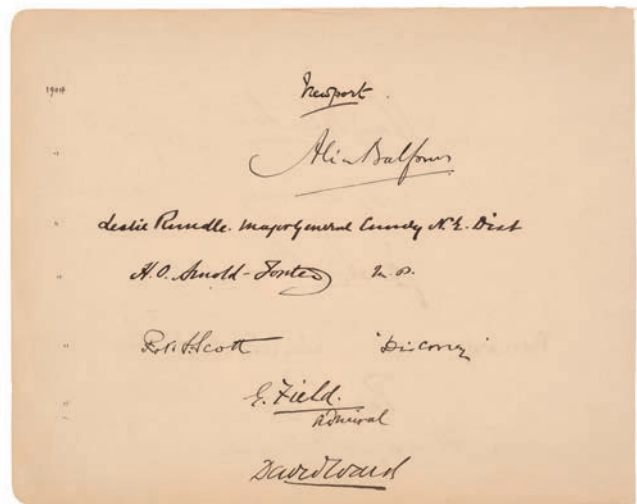 1904
Newport
" Alice Balfour
" Leslie Rundle. Major General Comdg N.E. Dist
" H.O. Arnold-Forster M.P.
" Robt. F. Scott 'Discovery'
" E. Field.
Admiral
" David Ward